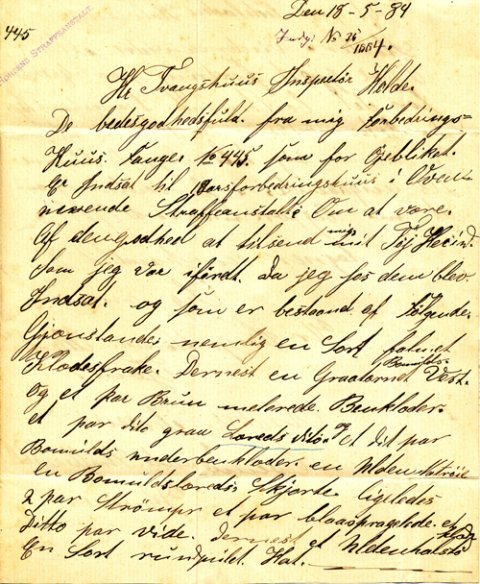 Den 18-5-84
445
HORSENS STRAFFEANSTALT
Indg: No 26/1884.
Hr Tvangshuus Inspektör Holde.
De bedesgodhedsfuld. fra mig Forbedrings=
Huus. Fange No 445. som for Öjeblikat.
Er Indsat til 1 aarsforbedringshuus i Oven
nevvende Straffeanstalt. Om at være.
Af dengodhed at tilsend mig mit Töj Herind.
Som jeg var ifördt. Da jeg hos dem blev
Indsat. og som er bestaand af Fölgende.
Gjenstande. nemlig en Sort
Klædesfrakke. Dernest en Graatærnet Bomulds- Vest.
Og et par Brun melerede. Benklæder.
et par dito graa Lærreds dito. og et dit par
Bomulds underbenklæder. en Ulden tröie
en Bomuldslærreds Skjorte. ligeledes
2 par Strömper et par blaaspragelede. et
Ditto par vide. dernest et Uldenhalstö
En Sort rundpulet Hat.